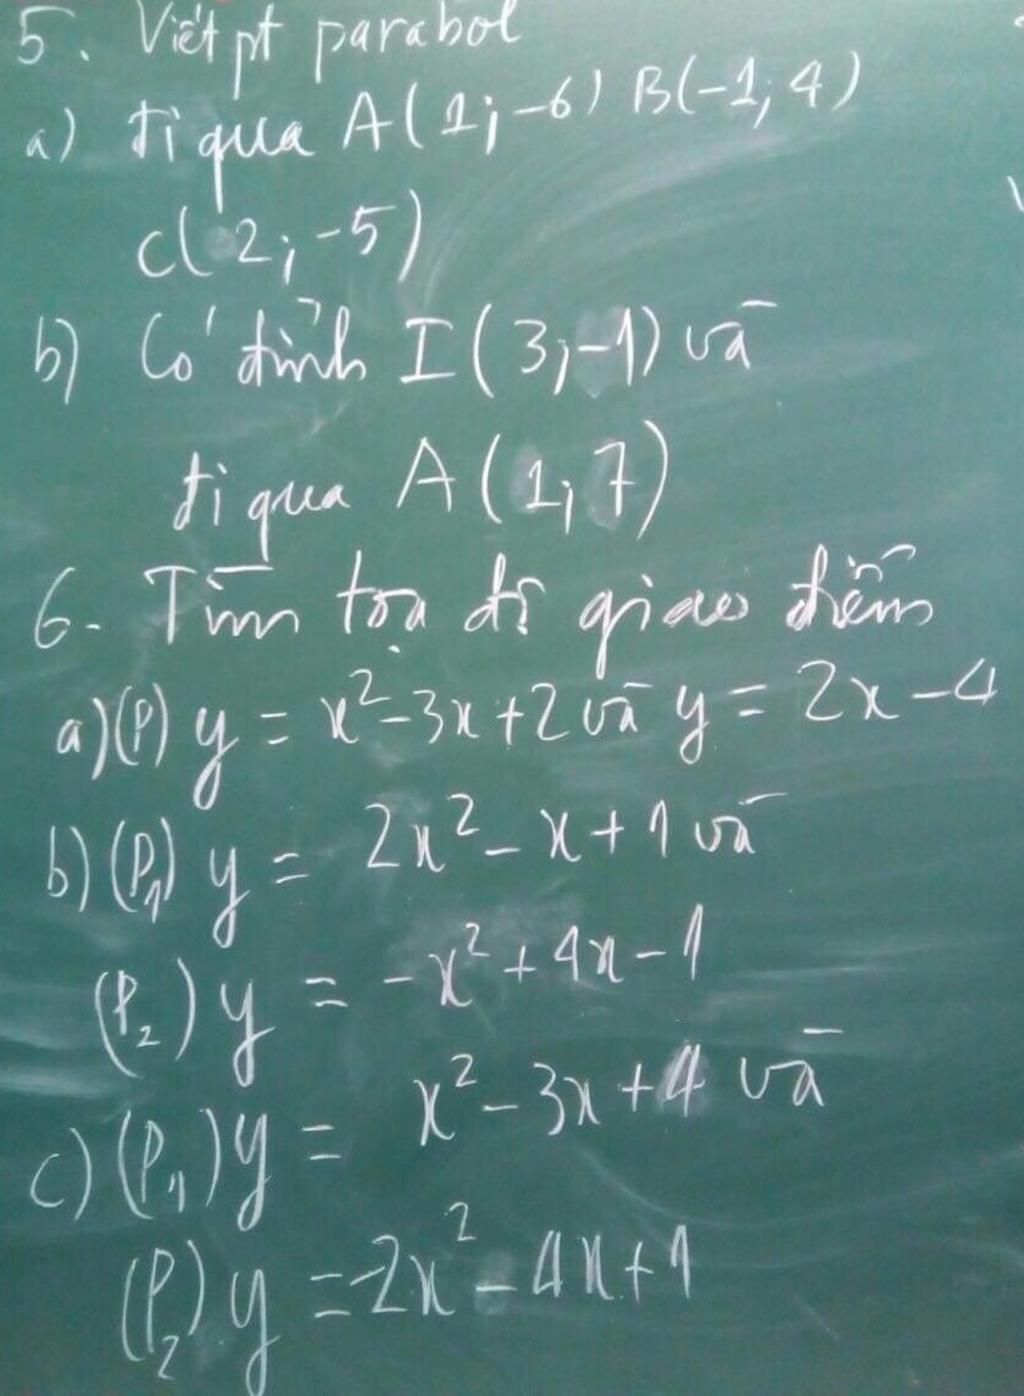 5. Viết pt parabol
a) đi qua A(1; -6) B(-1; 4)
C(2; -5)
b) Có đỉnh I(3; -1) và
đi qua A(1; 7)
6. Tìm tọa độ giao điểm
a) (P) y = x² - 3x + 2 và y = 2x - 4
b) (P₁) y = 2x² - x + 1 và
(P₂) y = -x² + 4x - 1
c) (P₁) y = x² - 3x + 4 và
(P₂) y = -2x² - 4x + 1